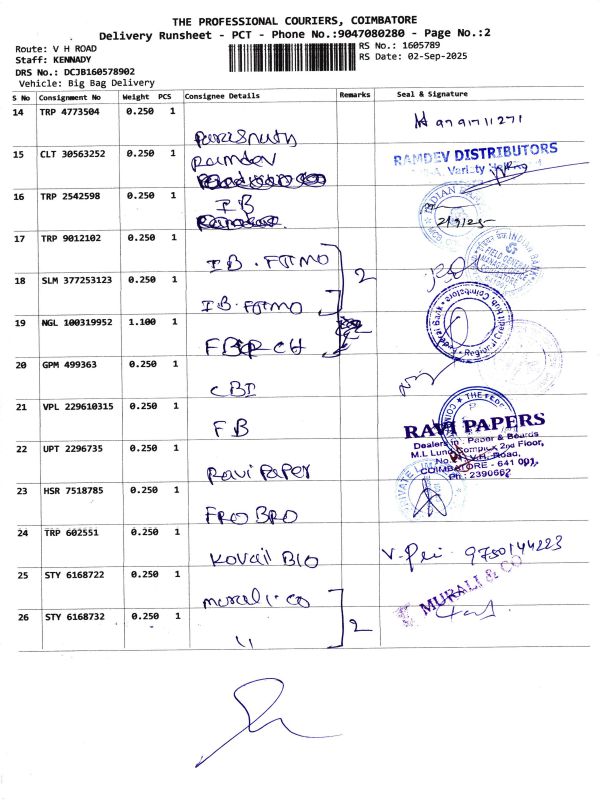 THE PROFESSIONAL COURIERS, COIMBATORE
Delivery Runsheet - PCT - Phone No.:9047080280 - Page No.:2
Route: V H ROAD
RS No.: 1605789
Staff: KENNADY
RS Date: 02-Sep-2025
DRS No.: DCJB160578902
Vehicle: Big Bag Delivery
S No Consignment No Weight PCS Consignee Details Remarks Seal & Signature
14 TRP 4773504 0.250 1
9791711271
15 CLT 30563252 0.250 1 Ramdev
RAMDEV DISTRIBUTORS
16 TRP 2542598 0.250 1 IB
INDIAN BANK
2/9/25
17 TRP 9012102 0.250 1
IB. FTMO
2
18 SLM 377253123 0.250 1
IB. FTMO
19 NGL 100319952 1.100 1
20 GPM 499363 0.250 1
CBI
21 VPL 229610315 0.250 1
FB
RAVI PAPERS
Dealers in : Paper & Boards
M.L Luna Complex 2nd Floor,
V.H. Road,
COIMBATORE - 641 001.
Ph : 2390662
22 UPT 2296735 0.250 1
Ravi Paper
23 HSR 7518785 0.250 1
FRO BRO
24 TRP 602551 0.250 1
Kovail BIO
9750144223
25 STY 6168722 0.250 1
murali.co
MURALI & CO
26 STY 6168732 0.250 1
"
2